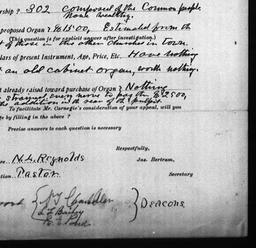 ership ? 302 composed of the Common people
None wealthy.
proposed Organ ? $1500, Estimated from the
(This question is for explicit answer after investigation.)
of those in the other Churches in town.
lars of present Instrument, Age, Price, Etc. Have nothing
an old cabinet organ, worth nothing.
nt already raised toward purchase of Organ ? Nothing
every nerve to pay the $2500,
the addition in the rear of the pulpit.
To facilitate Mr. Carnegie's consideration of your appeal, will you
by filling in the above ?
Precise answers to each question is necessary
Respectfully,
N. L. Reynolds
Jas. Bertram,
tion Pastor
Secretary
Chandler
Deacons